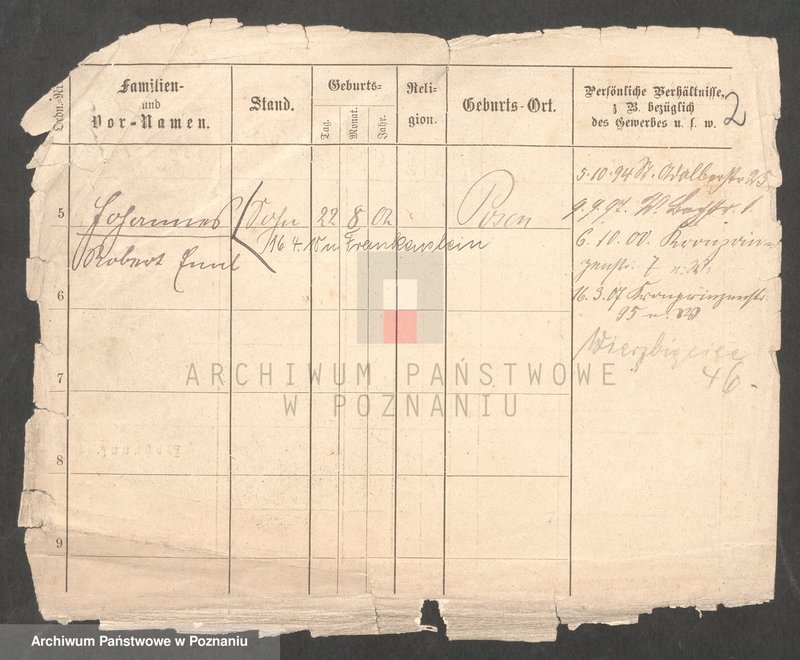 Ordn.-Nr.
Familien-
und
Vor-Namen.
Stand.
Geburts-
Tag.
Monat.
Jahr.
Reli-
gion.
Geburts-Ort.
Persönliche Verhältnisse,
z B. bezüglich
des Gewerbes u. s. w.
2
5
Johannes
Robert Emil
Sohn
22
8
02
Posen
16 4. 10 n Frankenstein
5.10.94 St. Adalbertstr 25
9.9.97. W.
6.10.00. Kronprin-
zenstr. 7
16.3.07 Kronprinzenstr.
95
Wierzbięcice
46
6
7
8
9
ARCHIWUM PAŃSTWOWE
W POZNANIU
Archiwum Państwowe w Poznaniu